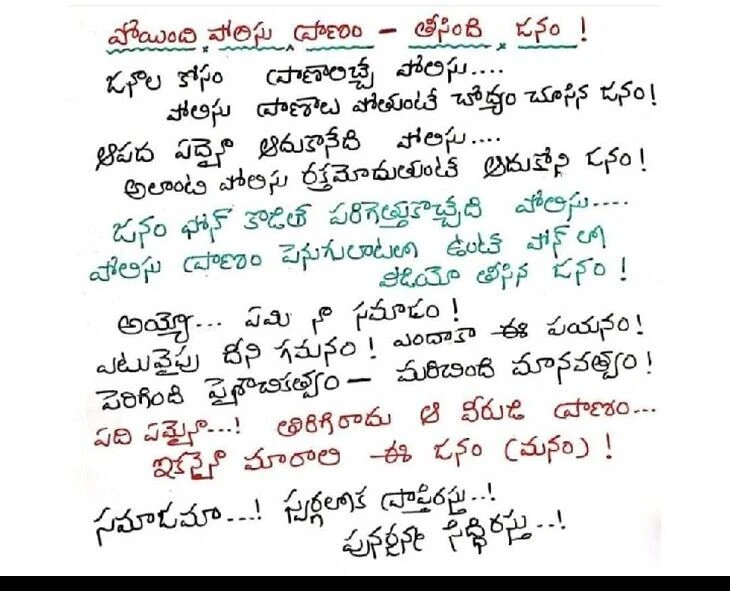 పోయింది పోలీసు ప్రాణం - తీసింది జనం !
జనాల కోసం ప్రాణాలిచ్చే పోలీసు....
పోలీసు ప్రాణాలు పోతుంటే చోద్యం చూసిన జనం!
ఆపద ఏదైనా ఆదుకొనేది పోలీసు....
అలాంటి పోలీసు రక్తమోడుతుంటే ఆదుకోని జనం!
జనం ఫోన్ కొడితే పరిగెత్తుకొచ్చేది పోలీసు....
పోలీసు ప్రాణం పెనుగులాటలో ఉంటే ఫోన్ లో
వీడియో తీసిన జనం !
అయ్యో... ఏమి నా సమాజం !
ఎటువైపు దీని గమనం ! ఎందాకా ఈ పయనం!
పెరిగింది పైశాచికత్వం - మరిచింది మానవత్వం !
ఏది ఏమైనా...! తిరిగిరాదు ఆ వీరుడి ప్రాణం...
ఇకనైనా మారాలి ఈ జనం (మనం) !
సమాజమా...! స్వర్గలోక ప్రాప్తిరస్తు..!
పునర్జన్మ సిద్ధిరస్తు..!